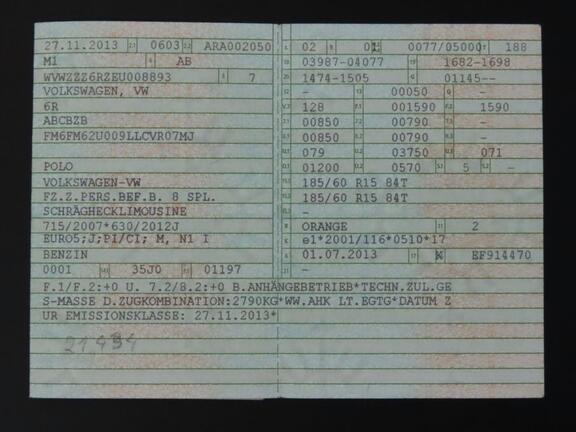 27.11.2013 2.1 0603 2.2 ARA002050
M1 4 AB
WVWZZZ6RZEU008893 3 7
VOLKSWAGEN, VW
6R
ABCBZB
FM6FM62U009LLCVR07MJ
POLO
VOLKSWAGEN-VW
FZ.Z.PERS.BEF.B. 8 SPL.
SCHRÄGHECKLIMOUSINE
715/2007*630/2012J
EURO5;J;PI/CI; M, N1 I
BENZIN
0001 35J0 01197
L 02 9 0077/05000 188
18 03987-04077 19 1682-1698
20 1474-1505 G 01145--
12 - 13 00050 Q -
V.7 128 F.1 001590 F.2 1590
7.1 00850 7.2 00790 7.3 -
8.1 00850 8.2 00790 8.3 -
U.1 079 U.2 03750 U.3 071
O.1 01200 O.2 0570 S.1 5 S.2 -
15.1 185/60 R15 84T
15.2 185/60 R15 84T
15.3 -
R ORANGE 11 2
K e1*2001/116*0510*17
6 01.07.2013 17 K 16 EF914470
21 -
F.1/F.2:+0 U. 7.2/8.2:+0 B.ANHÄNGEBETRIEB*TECHN.ZUL.GE
S-MASSE D.ZUGKOMBINATION:2790KG*WW.AHK LT.EGTG*DATUM Z
UR EMISSIONSKLASSE: 27.11.2013*